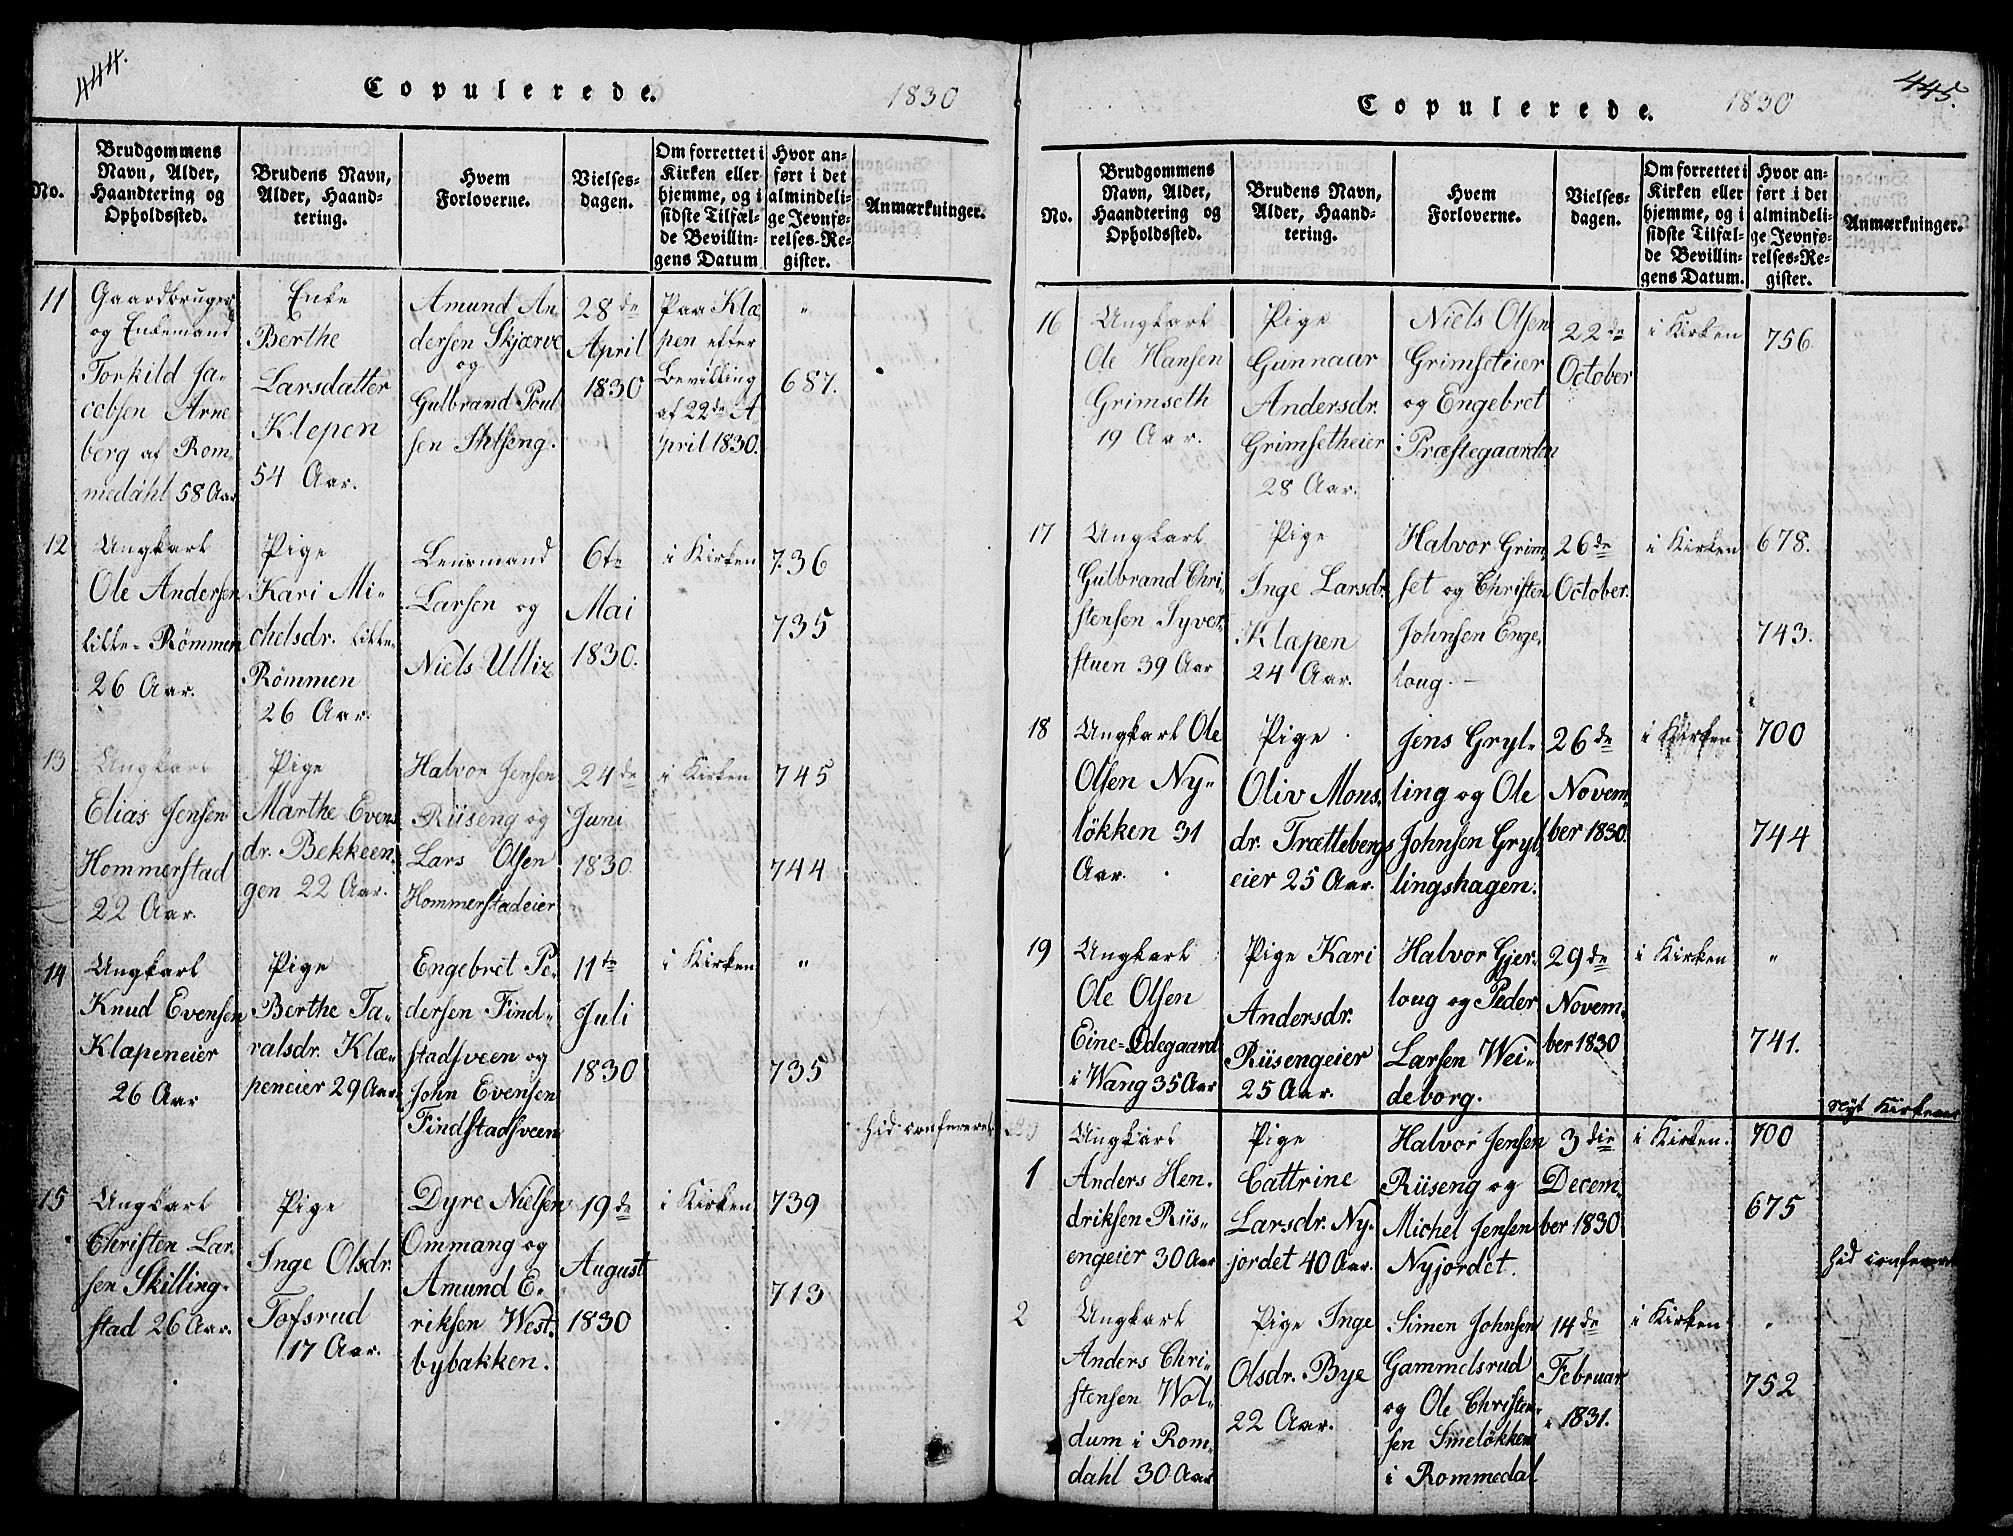 444.
Copulerede.
1830
No.
Brudgommens
Navn, Alder,
Haandtering og
Opholdssted.
Brudens Navn,
Alder, Haand-
tering.
Hvem
Forloverne.
Vielses-
dagen.
Om forrettet i
Kirken eller
hjemme, og i
sidste Tilfæl-
de Bevillin-
gens Datum
Hvor an-
ført i det
almindeli-
ge Jevnfø-
relses-Re-
gister.
Anmærkninger.
11
Gaardbruger
og Enkemand
Torkild Ja-
cobsen Arne
berg af Rom-
medahl 58 Aar
Enke
Berthe
Larsdatter
Klepen
54 Aar.
Amund An-
dersen Skjærve
og
Gulbrand Poul
sen
28de
April
1830
Paa Klæ
pen efter
Bevilling
af 22de A
pril 1830.
"
687.
12
Ungkarl
Ole Andersen
Lille-Rømmen
26 Aar.
Pige
Kari Mi-
chelsdr. Lille-
Rømmen
26 Aar.
Lensmand
Larsen og
Niels Ulliz
6te
Mai
1830.
i Kirken
736
735
13
Ungkarl
Elias Jensen
Hommerstad
22 Aar.
Pige
Marthe Evens
dr. Bekkeen-
gen 22 Aar.
Halvor Jensen
Riiseng og
Lars Olsen
Hommerstadeier
24de
Juni
1830.
i Kirken
745
744
14
Ungkarl
Knud Evensen
Klæpeneier
26 Aar
Pige
Berthe Ta-
ralsdr. Klæ-
peneier 29 Aar.
Engebret Pe-
dersen Find-
stadsveen og
John Evensen
Findstadsveen
11te
Juli
1830
i Kirken
"
735
hid confereret
15
Ungkarl
Christen Lar-
sen Skilling-
stad 26 Aar.
Pige
Inge Olsdr.
Tofsrud
17 Aar.
Dyre Nielsen
Ommang og
Amund E-
riksen West-
bybakken.
19de
August
1830
i Kirken
739
713
445.
Copulerede.
1830
No.
Brudgommens
Navn, Alder,
Haandtering og
Opholdssted.
Brudens Navn,
Alder, Haand-
tering.
Hvem
Forloverne.
Vielses-
dagen.
Om forrettet i
Kirken eller
hjemme, og i
sidste Tilfæl-
de Bevillin-
gens Datum.
Hvor an-
ført i det
almindeli-
ge Jevnfø-
relses-Re-
gister.
Anmærkninger.
16
Ungkarl
Ole Hansen
Grimseth
19 Aar.
Pige
Gunnaar
Andersdr.
Grimsetheier
28 Aar.
Niels Olsen
Grimseteier
og Engebret
i Præstegaarden
22de
October
i Kirken
756
17
Ungkarl
Gulbrand Chri-
stensen Syver-
stuen 39 Aar
Pige
Inge Larsdr.
Klæpen
24 Aar.
Halvor Grim-
set og Christen
Johnsen Enge-
loug.
26de
October.
i Kirken
678.
743.
18
Ungkarl Ole
Olsen Ny-
løkken 31
Aar.
Pige
Oliv Mons-
dr. Trættebergs
eier 25 Aar.
Jens Gryl-
ling og Ole
Johnsen Gryl-
lingshagen.
26de
Novem-
ber 1830.
i Kirken
700
744
19
Ungkarl
Ole Olsen
Eine-Ødegaard
i Wang 35 Aar
Pige Kari
Andersdr.
Riisengeier
25 Aar.
Halvor Gjer-
loug og Peder
Larsen Wei-
deborg.
29de
Novem-
ber 1830
i Kirken
"
741.
Nyt Kirkeaar
1
Ungkarl
Anders Hen-
driksen Riis-
engeier 30 Aar
Pige
Cattrine
Larsdr. Ny-
jordet 40 Aar.
Halvor Jensen
Riiseng og
Michel Jensen
Nyjordet.
3die
Decem-
ber 1830
i Kirken.
700
675
hid confereret
2
Ungkarl
Anders Chri-
stensen Wol-
dum i Rom-
dahl 30 Aar
Pige Inge
Olsdr. Bye
22 Aar.
Simen Johnsen
Gammelsrud
og Ole Christen-
sen Smeløkken
i Rommedal
14de
Februar
1831.
i Kirken
"
752